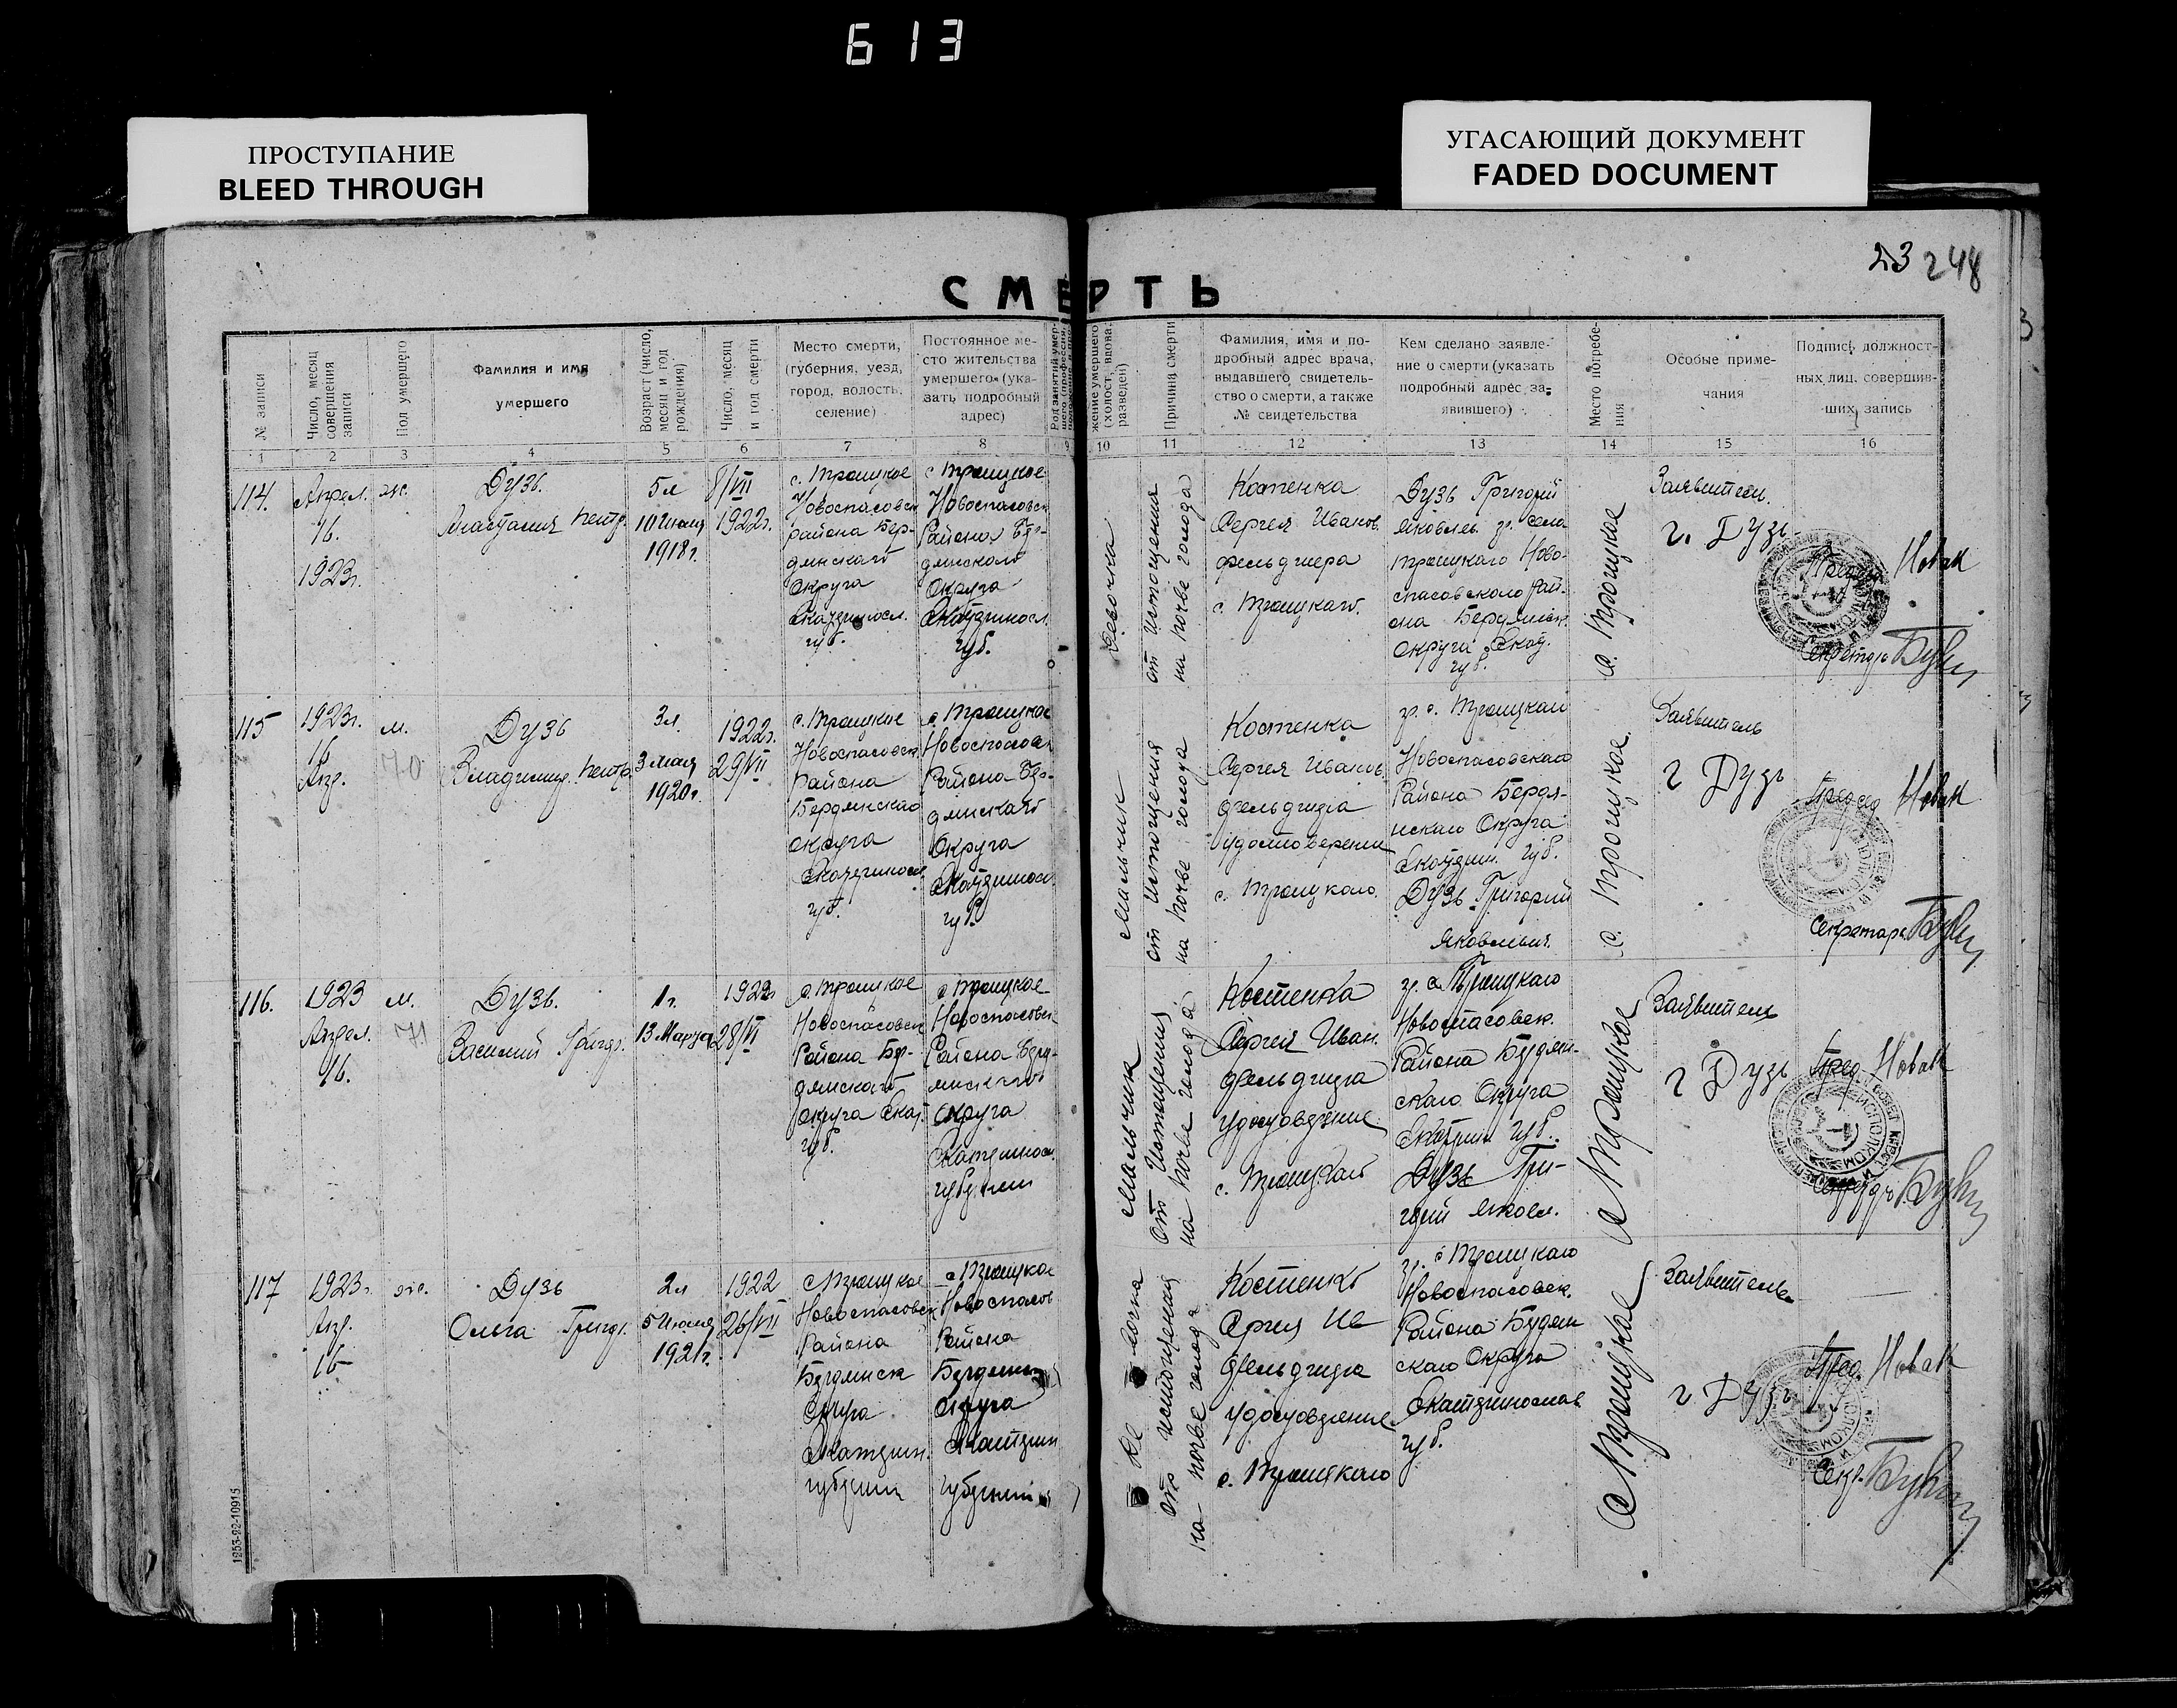 613
ПРОСТУПАНИЕ
BLEED THROUGH
УГАСАЮЩИЙ ДОКУМЕНТ
FADED DOCUMENT
23 248
СМЕРТЬ
№ записи
Число, месяц
совершения
записи
Пол умершего
Фамилия и имя
умершего
Возраст (число,
месяц и год
рождения)
Число, месяц
и год смерти
Место смерти,
(губерния, уезд,
город, волость,
селение)
Постоянное ме-
сто жительства
умершего (ука-
зать подробный
адрес)
жение умершего
(холост., вдова,
разведен)
Причина смерти
Фамилия, имя и по-
дробный адрес врача,
выдавшего свидетель-
ство о смерти, а также
№ свидетельства
Кем сделано заявле-
ние о смерти (указать
подробный адрес за-
явившего)
Место погребе-
ния
Особые приме-
чания
Подпись должност-
ных лиц, совершив-
ших запись
1 2 3 4 5 6 7 8 9 10 11 12 13 14 15 16
114.
Апрел.
16.
1923г.
ж.
Дузь.
Анастасия Петр.
5л
10 Июня
1918г.
8/VII
1922г.
с. Троицкое
Новоспасовск
района Бер-
дянского
Округа
губ.
с Троицкое
Новоспасовск
Района Бер-
дянского
Округа
губ.
девочка
от истощения
на почве голода
Костенка
Сергея Иванов.
фельдшера
с. Троицкаго.
Дузь Григорий
Яковлев. гр. села
Троицкаго Ново-
спасовского Рай-
она Бердянск.
Округа Екат.
губ.
с. Троицкое
Заявители.
г. Дузь
Новак
Секретарь
115
1923г.
16
Апр.
м.
70
Дузь
Владимир. Петр.
3л.
3 мая
1920г.
1922г.
29/VII
с. Троицкое
Новоспасовск
Района
Бердянскаго
округа
губ.
с. Троицкое
Новоспасовск
Района Бер-
дянскаго
Округа
губ.
Мальчик
от истощения
на почве голода
Костенка
Сергея Иванов.
фельдшера
с. Троицкаго.
гр. с. Троицкаго
Новоспасовскаго
Района Бердя-
нскаго Округа
губ.
Дузь Григорий
Яковлевич.
с. Троицкое.
Заявитель
г Дузь
Председ Новак
Секретарь
116.
1923
Апрел.
16.
м.
71
Дузь.
Василий Григор.
1г.
13 Марта
1922г
28/VI
с. Троицкое
Новоспасовск
Района Бер-
дянскаго
округа Екат.
губ.
с Троицкое
Новоспасовск
Района Берд-
янскаго
Округа
Мальчик
от истощения
на почве голода
Костенка
Сергея Иван.
фельдшера
с. Троицкаго
гр. с. Троицкаго
Новоспасовск.
Района Бердян-
скаго Округа
губ.
Дузь Гри-
горий Яковл.
с Троицкое
Заявитель
г Дузь
Пред. Новак
117
1923г.
Апр.
16
ж.
Дузь
Ольга Григор.
2л
5 Июля
1921г.
1922
26/VII
с Троицкое
Новоспасовск
Района
Бердянск
Округа
Екатерин.
губернии
с Троицкое
Новоспасов
Района
Бердянск
Округа
Екатерин
губернии
от истощения
на почве голода
Костенко
Сергея Ив
фельдшера
с. Троицкаго
гр. с Троицкаго
Новоспасовск.
Района Бердян
скаго Округа
Екатеринослав
губ.
с Троицкое
Заявитель
г. Дузь
Пред. Новак
Секр.
1253-22-10915